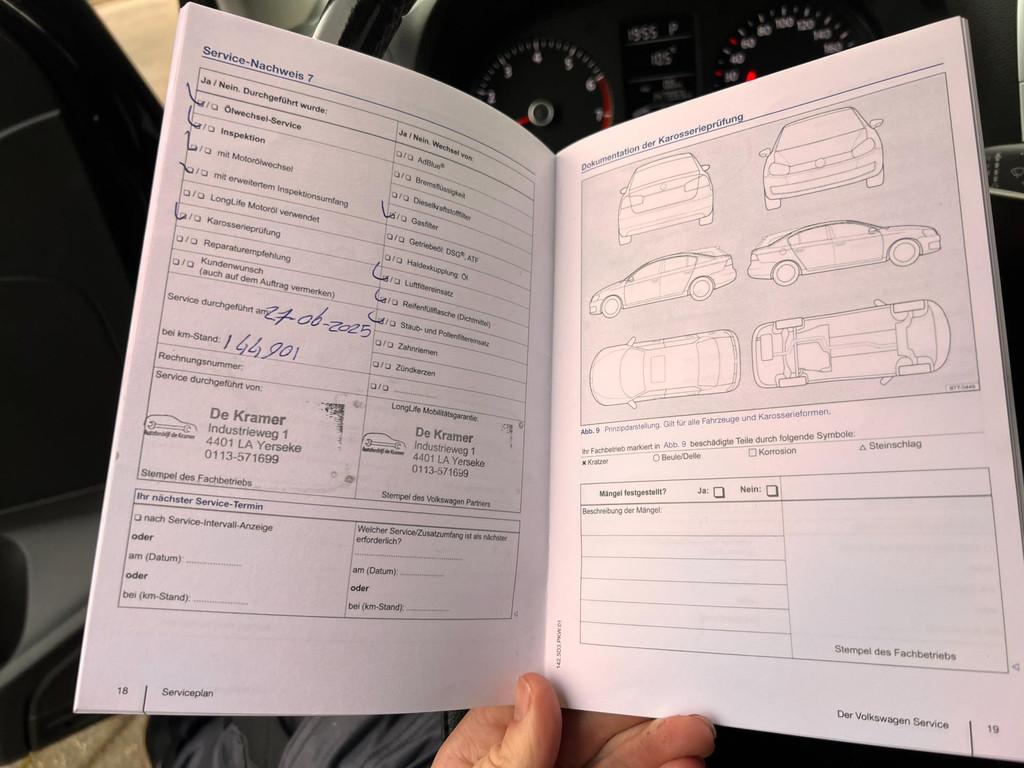 Service-Nachweis 7
Ja / Nein. Durchgeführt wurde:
❏/❏ Ölwechsel-Service
❏/❏ Inspektion
❏/❏ mit Motorölwechsel
❏/❏ mit erweitertem Inspektionsumfang
❏/❏ LongLife Motoröl verwendet
❏/❏ Karosserieprüfung
❏/❏ Reparaturempfehlung
❏/❏ Kundenwunsch
(auch auf dem Auftrag vermerken)
Service durchgeführt am 27-06-2025
bei km-Stand: 144,901
Rechnungsnummer:
Service durchgeführt von:
De Kramer
Industrieweg 1
4401 LA Yerseke
0113-571699
Autobedrijf de Kramer
Stempel des Fachbetriebs
Ja / Nein. Wechsel von:
❏/❏ AdBlue®
❏/❏ Bremsflüssigkeit
❏/❏ Dieselkraftstofffilter
❏/❏ Gasfilter
❏/❏ Getriebeöl: DSG®, ATF
❏/❏ Haldexkupplung: Öl
❏/❏ Luftfiltereinsatz
❏/❏ Reifenfüllflasche (Dichtmittel)
❏/❏ Staub- und Pollenfiltereinsatz
❏/❏ Zahnriemen
❏/❏ Zündkerzen
❏/❏
LongLife Mobilitätsgarantie:
De Kramer
Industrieweg 1
4401 LA Yerseke
0113-571699
Autobedrijf de Kramer
Stempel des Volkswagen Partners
Ihr nächster Service-Termin
❏ nach Service-Intervall-Anzeige
oder
am (Datum):
oder
bei (km-Stand):
Welcher Service/Zusatzumfang ist als nächster
erforderlich?
am (Datum):
oder
bei (km-Stand):
18 Serviceplan
Dokumentation der Karosserieprüfung
B7T-0449
Abb. 9 Prinzipdarstellung. Gilt für alle Fahrzeuge und Karosserieformen.
Ihr Fachbetrieb markiert in Abb. 9 beschädigte Teile durch folgende Symbole:
✖ Kratzer ○ Beule/Delle □ Korrosion △ Steinschlag
Mängel festgestellt? Ja: ❏ Nein: ❏
Beschreibung der Mängel:
Stempel des Fachbetriebs
142.5D3.PKW.01
Der Volkswagen Service 19
1955 P
105
2 3 4 5 6 7
40 60 80 100 120 140 160